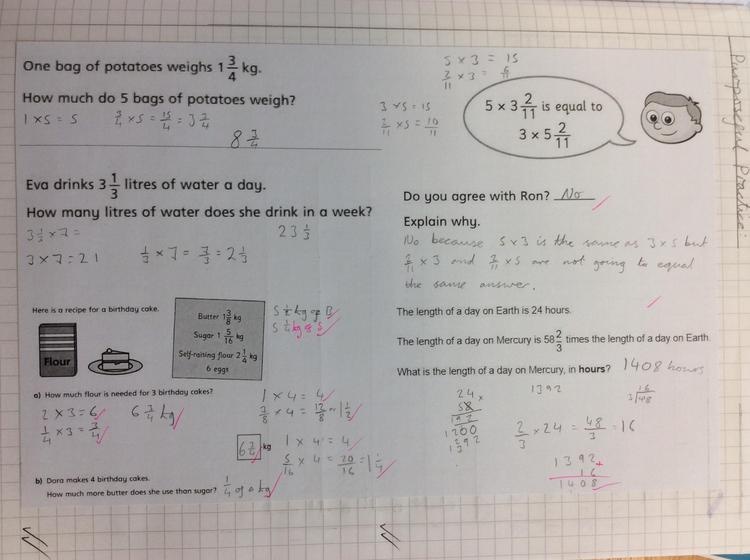 One bag of potatoes weighs 1 3/4 kg.
How much do 5 bags of potatoes weigh?
1 x 5 = 5 3/4 x 5 = 15/4 = 3 3/4
8 3/4
5 x 3 = 15
2/11 x 3 = 6/11
3 x 5 = 15
2/11 x 5 = 10/11
5 × 3 2/11 is equal to
3 × 5 2/11
Purposeful Practice
Eva drinks 3 1/3 litres of water a day.
How many litres of water does she drink in a week?
3 1/3 x 7 =
23 1/3
3 x 7 = 21 1/3 x 7 = 7/3 = 2 1/3
Do you agree with Ron? No
Explain why.
No because 5 x 3 is the same as 3 x 5 but
2/11 x 3 and 2/11 x 5 are not going to equal
the same answer.
Here is a recipe for a birthday cake.
Flour
Butter 1 3/8 kg
Sugar 1 5/16 kg
Self-raising flour 2 1/4 kg
6 eggs
5 1/2 kg of B
5 1/4 kg of S
a) How much flour is needed for 3 birthday cakes?
2 x 3 = 6 6 3/4 kg
1/4 x 3 = 3/4
kg
1 x 4 = 4
3/8 x 4 = 12/8 or 1 1/2
1 x 4 = 4
5/16 x 4 = 20/16 = 1 1/4
b) Dora makes 4 birthday cakes.
How much more butter does she use than sugar? 1/4 of a kg
The length of a day on Earth is 24 hours.
The length of a day on Mercury is 58 2/3 times the length of a day on Earth.
What is the length of a day on Mercury, in hours? 1408 hours
24 x
58
192
1200
1392
1392
16
3/48
2/3 x 24 = 48/3 = 16
1392 +
16
1408